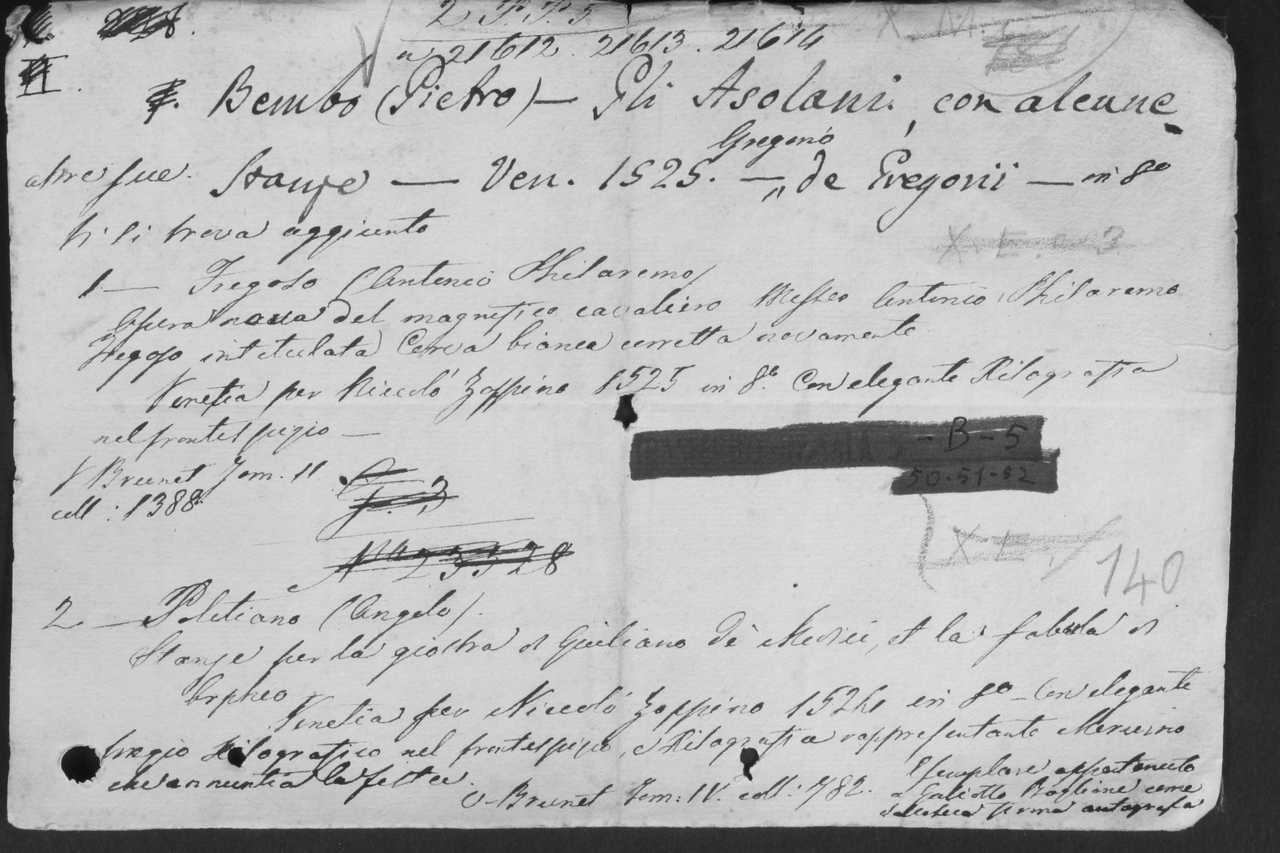 2 T. T. 5
n 21612. 21613. 21614
Bembo (Pietro) — Gli Asolani, con alcune
altre sue. Stanze — Ven. 1525. — de Gregorii — in 8º
Gregorio
Vi si trova aggiunto
1 — Fregoso (Antonio Philaremo)
Opera nova del magnifico cavaliero Messeo Antonio Philaremo
Fregoso intitulata Cerva bianca corretta novamente
Venetia per Niccolò Zoppino 1525 in 8º. Con elegante Xilografia
nel frontespizio —
V Brunet Tom: II
coll: 1388.
- B - 5
50-51-52
X E. 3
Nº 23528
X E.
140
2 — Politiano (Angelo).
Stanze per la giostra di Giuliano de Medici, et la fabula di
Orpheo
Venetia per Niccolò Zoppino 1524 in 8º — Con elegante
fregio Xilografico nel frontespizio, e Xilografia rappresentante Mercurio
che annuntia la festa.
V. Brunet Tom: IV. coll: 782.
Esemplare appartenuto
a Galiotto Baglione come
firma autografa